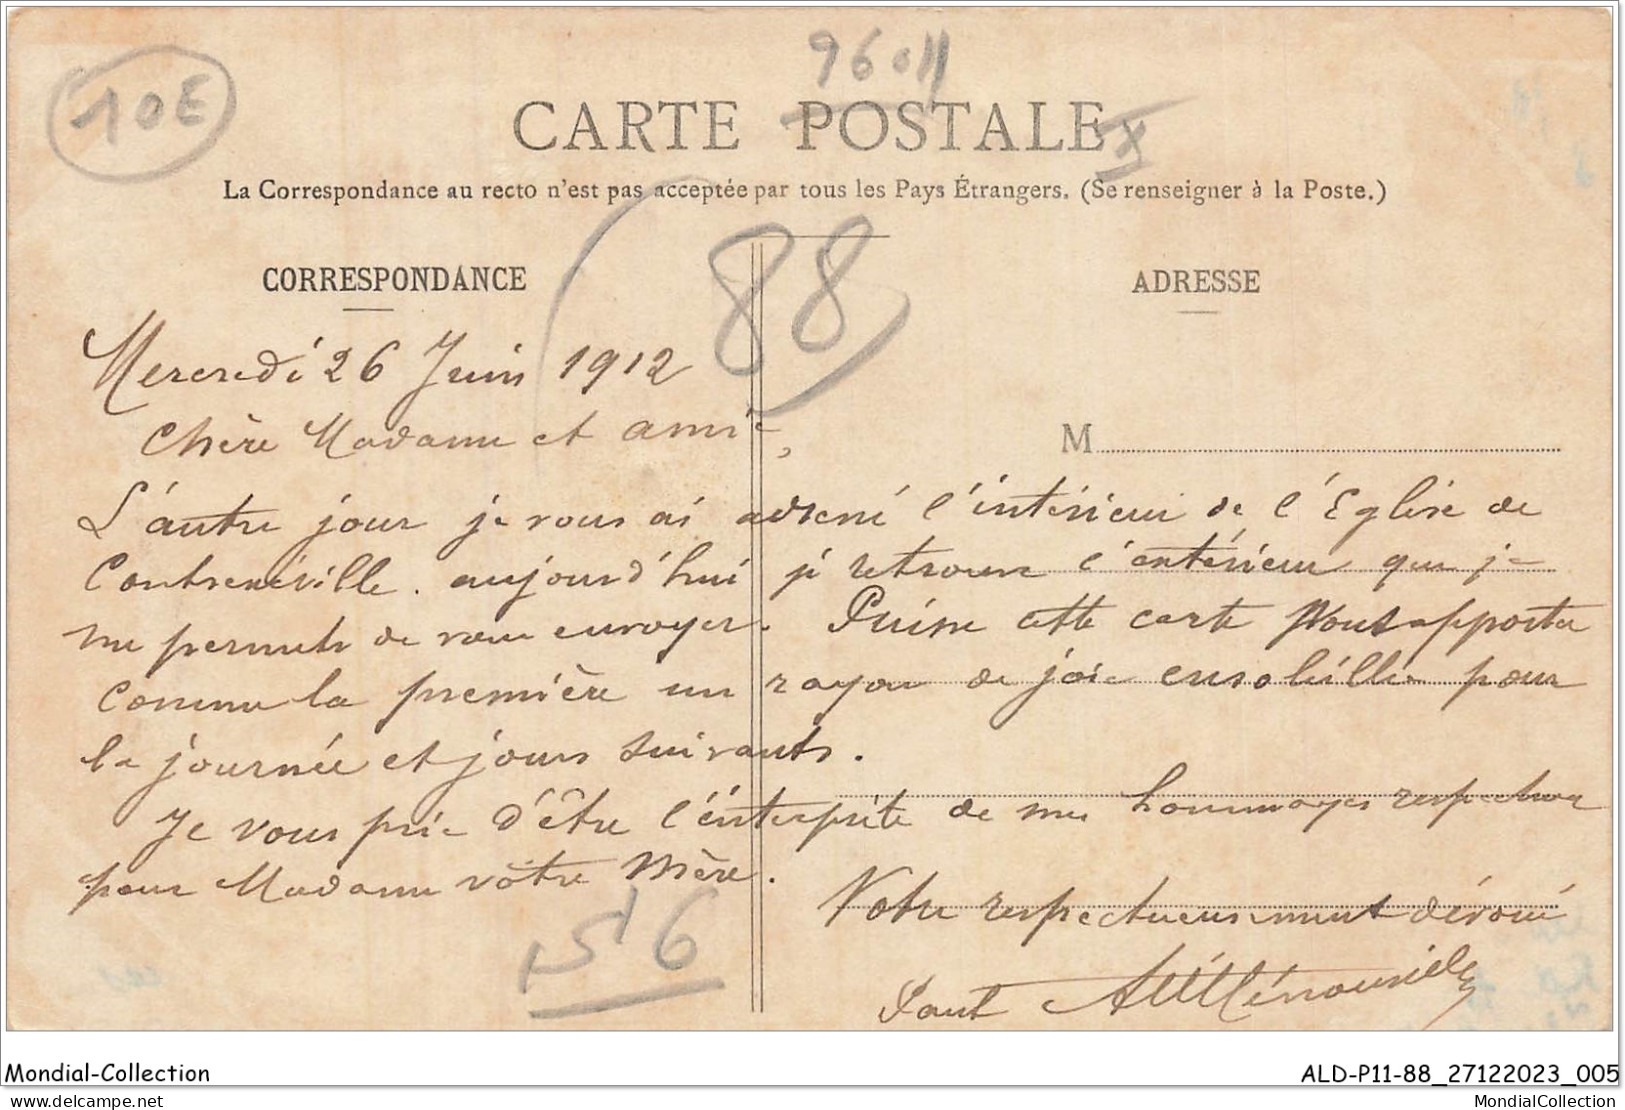 96011
10E
CARTE POSTALE
La Correspondance au recto n'est pas acceptée par tous les Pays Étrangers. (Se renseigner à la Poste.)
88
CORRESPONDANCE
ADRESSE
Mercredi 26 Juin 1912
Chère Madame et amie,
M
L'autre jour je vous ai adressé l'intérieur de l'Eglise de
Contrexéville. aujourd'hui je retrouve l'extérieur que je
me permets de vous envoyer. Puisse cette carte vous apporter
comme la première un rayon de joie ensoleillée pour
la journée et jours suivants.
Je vous prie d'être l'interprète de mes hommages respectueux
pour Madame votre Mère.
Votre respectueusement dévoué
5'6
Mondial-Collection
ALD-P11-88_27122023_005
delcampe.net
MondialCollection